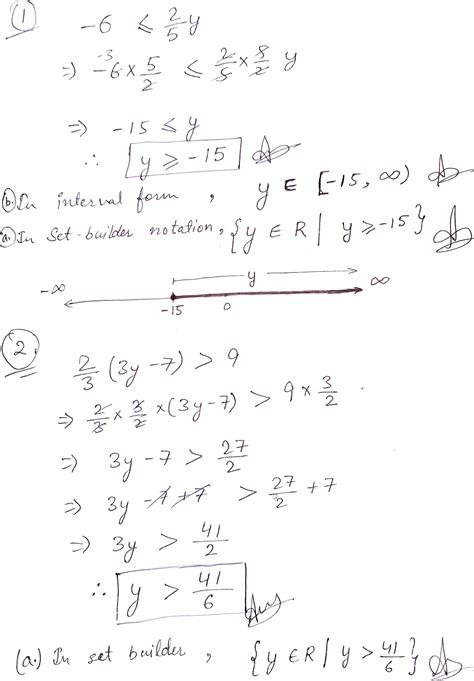 1
-6 ≤ 2/5 y
⇒ -6 × 5/2 ≤ 2/5 × 5/2 y
-3
⇒ -15 ≤ y
∴ y ⩾ -15 Ans
(b.) In interval form, y ∈ [-15, ∞) Ans
(a.) In Set-builder notation, {y ∈ R | y ⩾ -15} Ans
y
-∞ ∞
-15 0
2.
2/3 (3y - 7) > 9
⇒ 2/3 × 3/2 × (3y - 7) > 9 × 3/2
⇒ 3y - 7 > 27/2
⇒ 3y - 7 + 7 > 27/2 + 7
⇒ 3y > 41/2
∴ y > 41/6 Ans
(a.) In set builder, {y ∈ R | y > 41/6} Ans